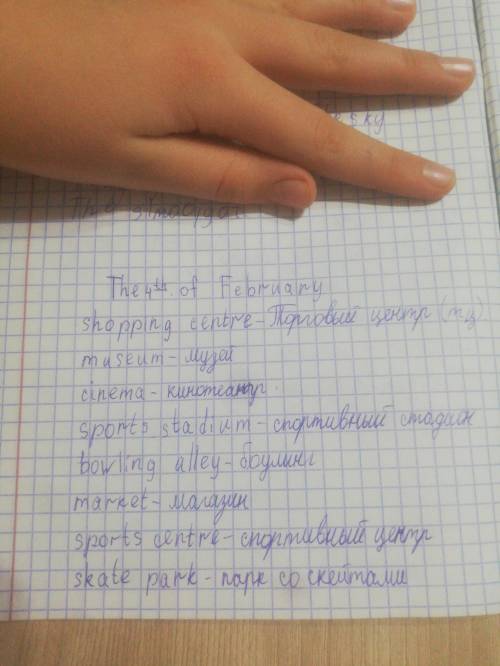 sky
The
The 4th of February
shopping centre - Торговый центр (тц)
museum - музей
cinema - кинотеатр.
sports stadium - спортивный стадион
bowling alley - боулинг
market - магазин
sports centre - спортивный центр
skate park - парк со скейтами